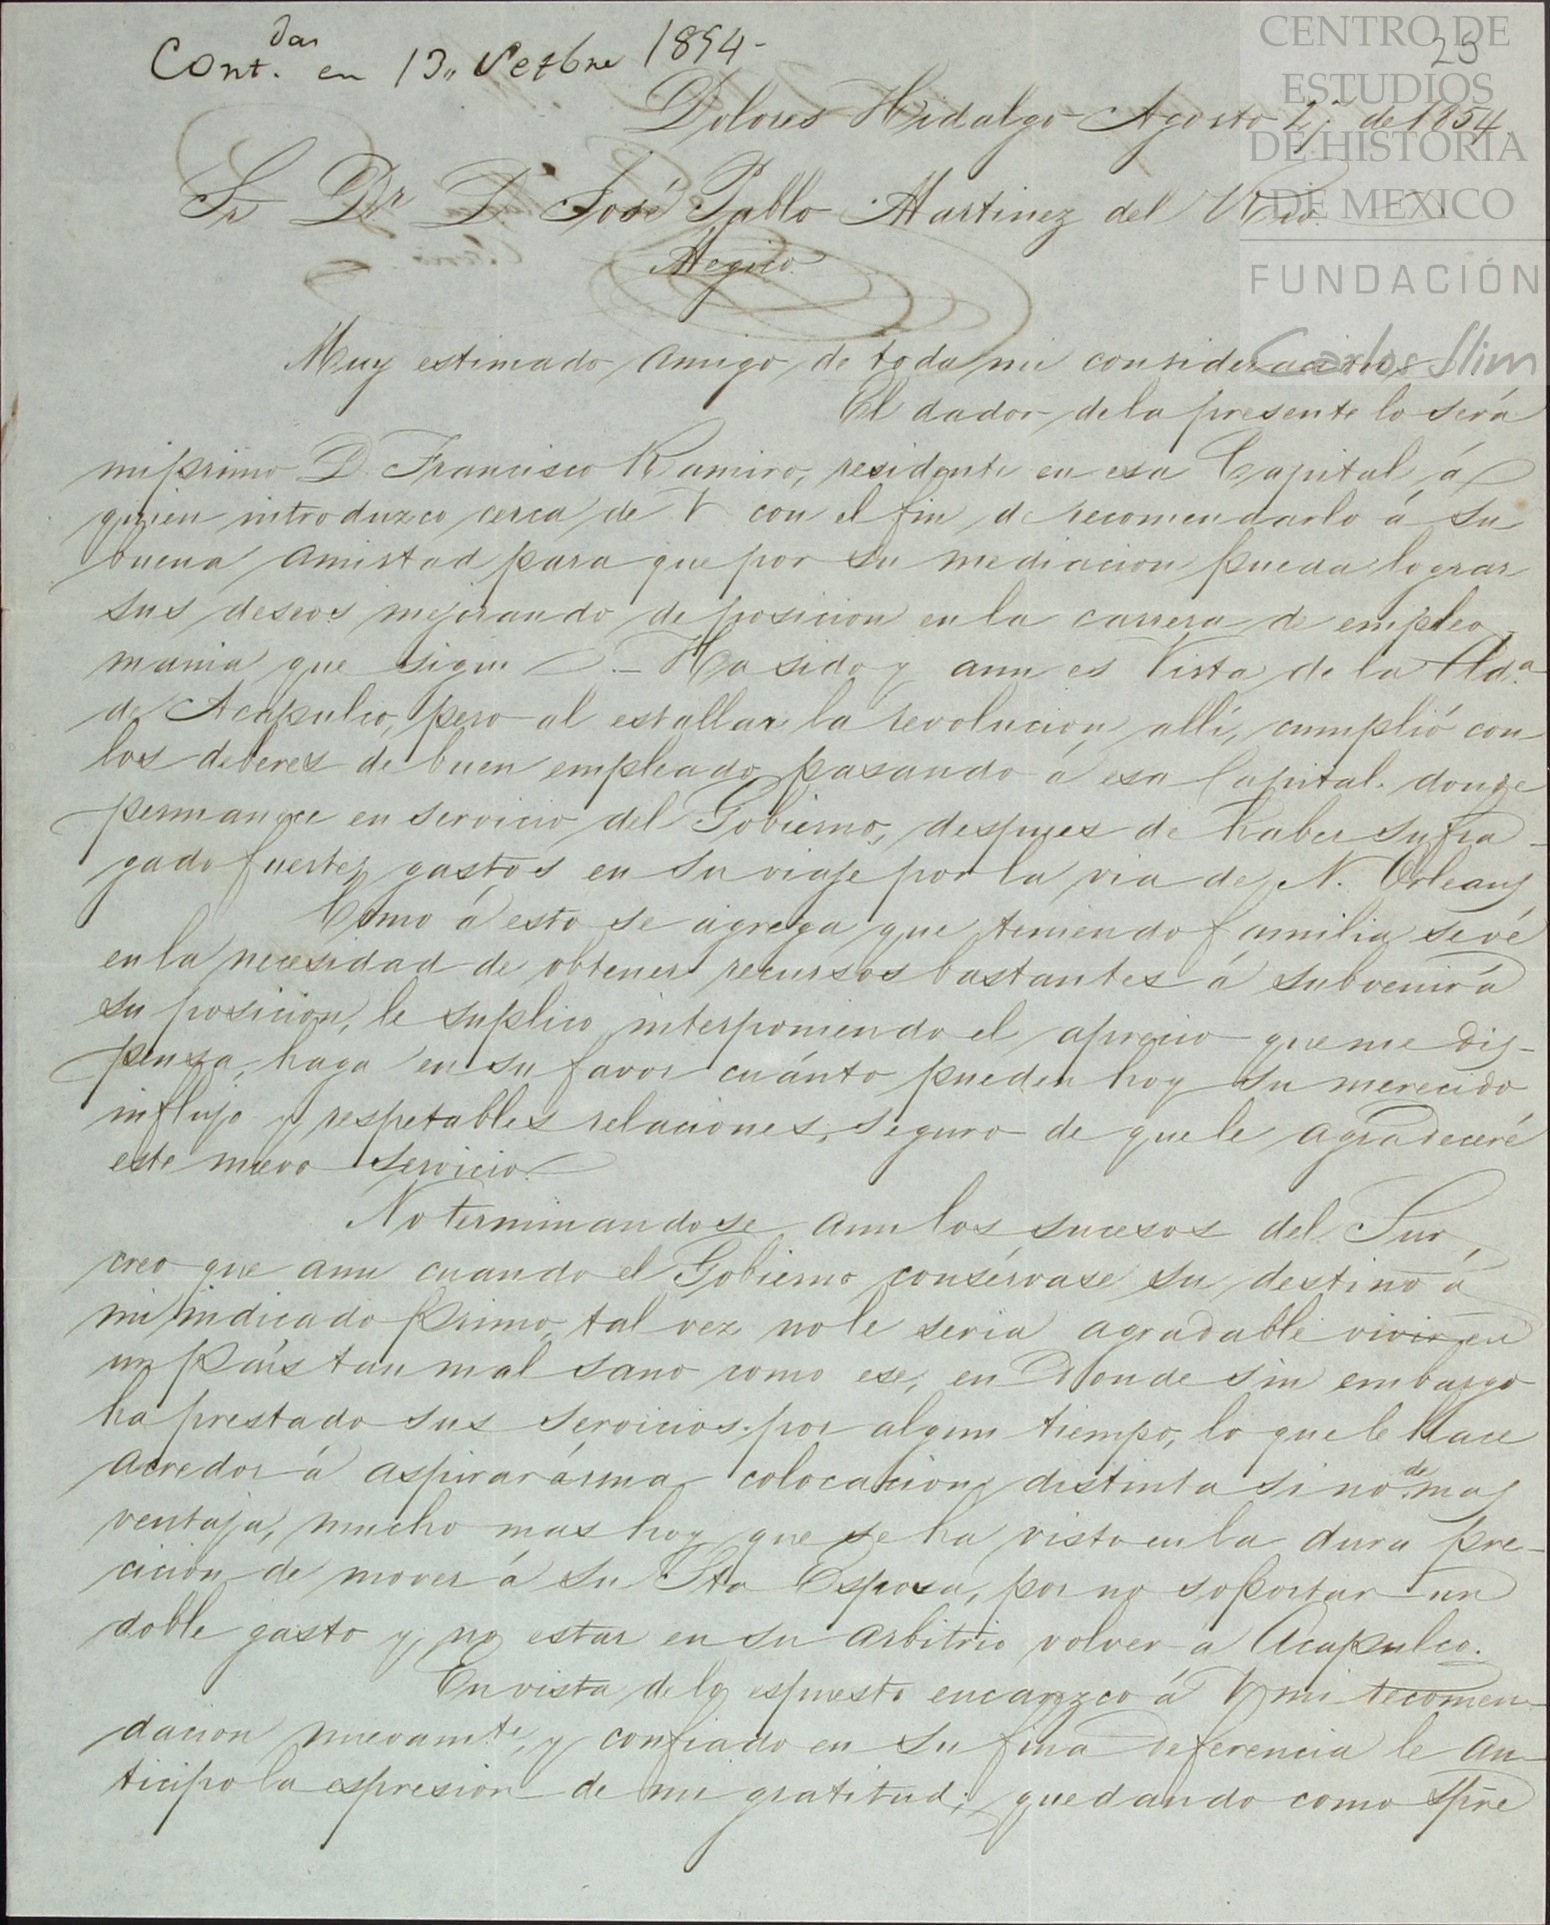 Cont.das en 13,, Setbre 1854-
25
Dolores Hidalgo Agosto 2, de 1854.
Sr Dr D José Pablo Martinez del Rio
Mégico
Muy estimado amigo de toda mi consideracion
El dador de la presente lo será
mi primo D. Francisco Ramiro, residente en esa Capital á
quien introduzco cerca de V con el fin de recomendarlo á su
buena amistad para que por su mediacion pueda lograr
sus deseos mejorando de posicion en la carrera de empleo
mania que sigue. - Ha sido y aun es Vista de la Ad.a
de Acapulco, pero al estallar la revolucion allí, cumplió con
los deberes de buen empleado pasando á esa Capital donde
permanece en servicio del Gobierno, despues de haber sufra-
gado fuertes gastos en su viaje por la via de N. Orleans
Como á esto se agrega que teniendo familia se vé
en la necesidad de obtener recursos bastantes á subvenir á
su posicion, le suplico interponiendo el aprecio que me dis-
pensa, haga en su favor cuánto pueden hoy su merecido
influjo y respetables relaciones, seguro de que le agradeceré
este nuevo servicio.
No terminandose aun los sucesos del Sur,
creo que aun cuando el Gobierno consérvase su destino á
mi indicado primo, tal vez no le seria agradable vivir en
un país tan mal sano como ese, en donde sin embargo
ha prestado sus servicios por algun tiempo, lo que le hace
acredor á aspirar á una colocacion distinta si no de mas
ventaja, mucho mas hoy que se ha visto en la dura pre-
cicion de mover á su Sta Esposa, por no soportar un
doble gasto y no estar en su arbitrio volver a Acapulco.
En vista de lo espuesto encarezco á V mi recomen-
dacion nuevamte, y confiado en su fina deferencia le an-
ticipo la espresion de mi gratitud; quedando como spre
CENTRO DE
ESTUDIOS
DE HISTORIA
DE MEXICO
FUNDACIÓN
Carlos Slim